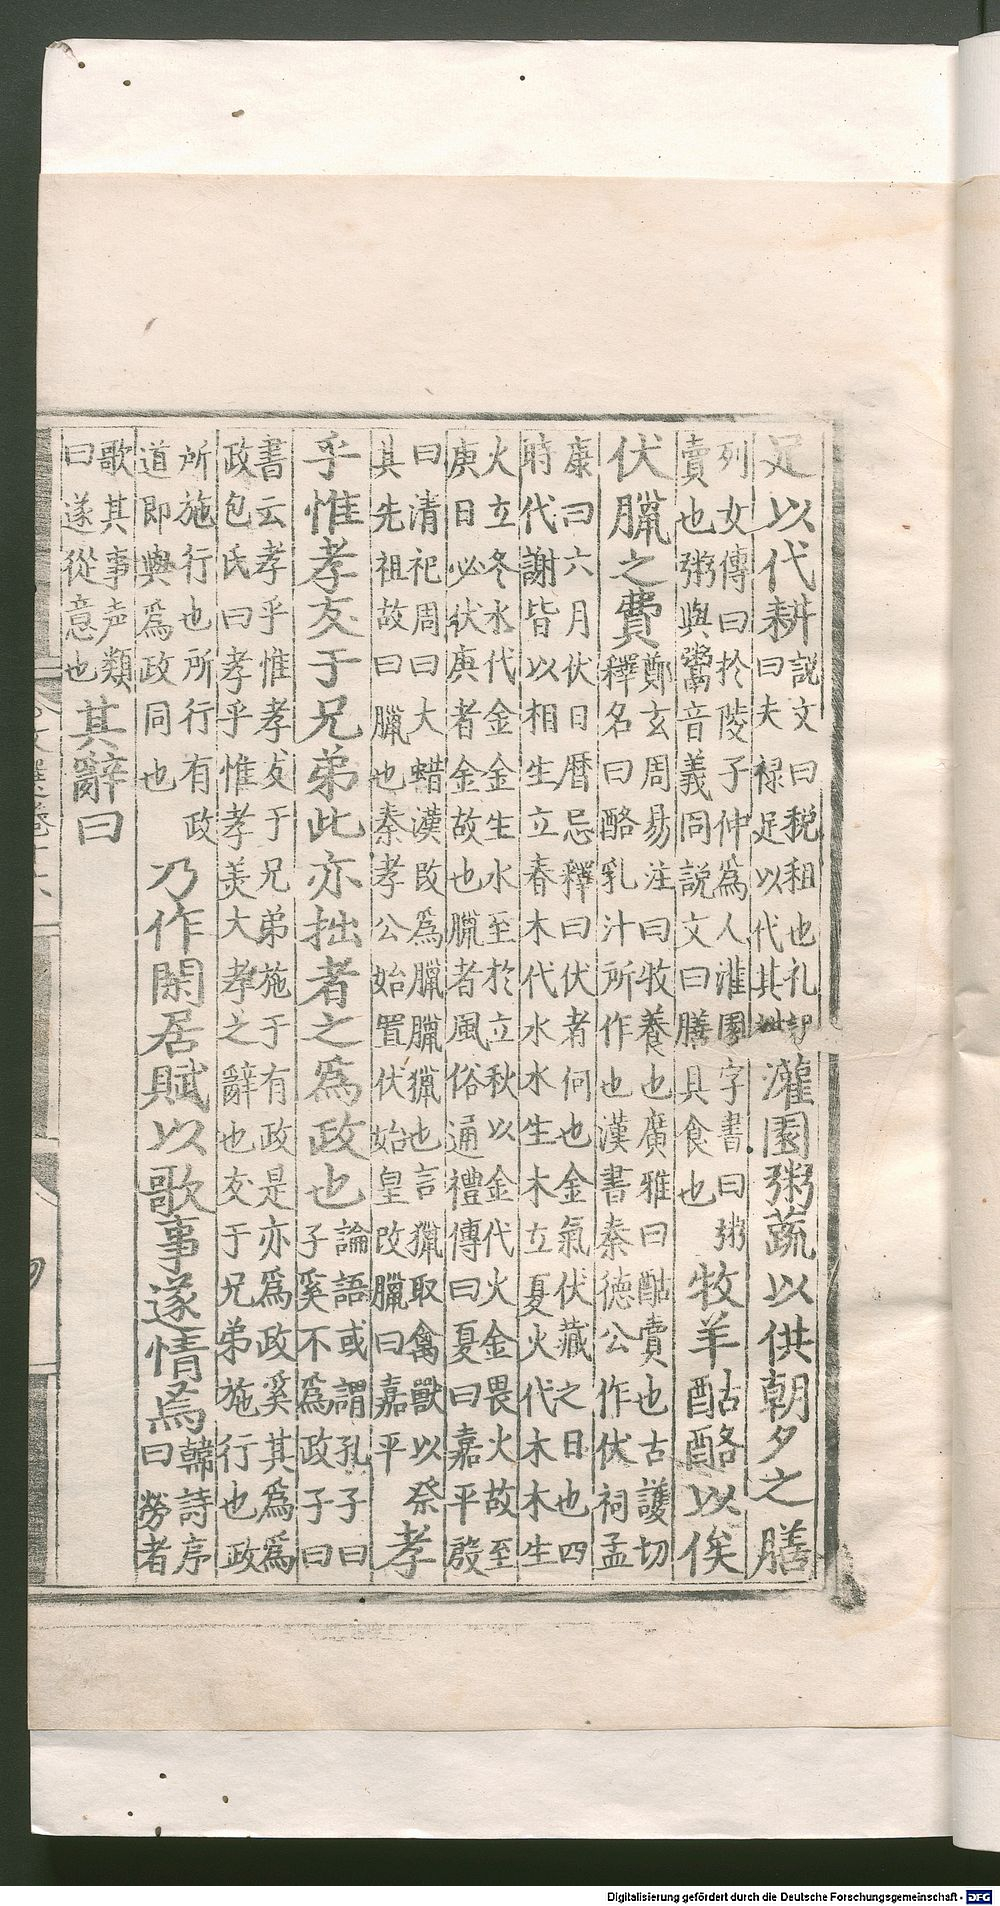 足以代耕說文曰税租也礼記曰夫禄足以代其耕灌園粥蔬以供朝夕之膳
列女傳曰於陵子仲為人灌園字書曰粥賣也粥與鬻音義同説文曰膳具食也牧羊酤酪以俟
伏臘之費鄭玄周易注曰牧養也廣雅曰酤賣也古護切釋名曰酪乳汁所作也漢書秦德公作伏祠孟
康曰六月伏日曆忌釋曰伏者何也金氣伏藏之日也四時代謝皆以相生立春木代水水生木立夏火代木木生
火立冬水代金金生水至於立秋以金代火金畏火故至庚日必伏庚者金故也臘者風俗通禮傳曰夏曰嘉平殷
曰清祀周曰大蜡漢改為臘臘獵也言獵取禽獸以祭其先祖故曰臘也秦孝公始置伏始皇改臘曰嘉平孝
乎惟孝友于兄弟此亦拙者之為政也論語或謂孔子曰子奚不為政子曰
書云孝乎惟孝友于兄弟施于有政是亦為政奚其為為政包氏曰孝乎惟孝美大孝之辭也友于兄弟施行也政
所施行也所行有政道即與為政同也乃作閑居賦以歌事遂情焉韓詩序曰勞者
歌其事声類曰遂從意也其辭曰
Digitalisierung gefördert durch die Deutsche Forschungsgemeinschaft - DFG